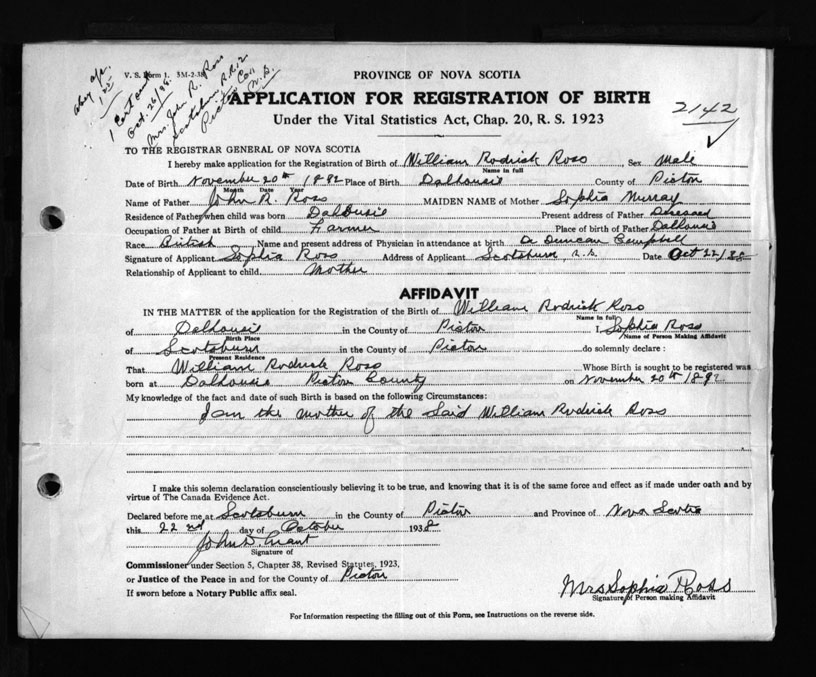 V. S. Form 1. 3M-2-38
1 Cert and
Mrs. John R. Ross
Scotsburn R.R. 2
Pictou Co
N.S.
PROVINCE OF NOVA SCOTIA
APPLICATION FOR REGISTRATION OF BIRTH
2142
Under the Vital Statistics Act, Chap. 20, R. S. 1923
TO THE REGISTRAR GENERAL OF NOVA SCOTIA
I hereby make application for the Registration of Birth of William Rodrick Ross, Sex Male
Name in full
Date of Birth November 20th 1892 Place of Birth Dalhousie County of Pictou
Month Date Year
Name of Father John R. Ross MAIDEN NAME of Mother Sophia Murray
Residence of Father when child was born Dalousie Present address of Father Deceased
Occupation of Father at Birth of child Farmer Place of birth of Father Dalhousie
Race British Name and present address of Physician in attendance at birth Dr Duncan Campbell
Signature of Applicant Sophia Ross Address of Applicant Scotsburn, N.S. Date Oct 22/38
Relationship of Applicant to child Mother
AFFIDAVIT
IN THE MATTER of the application for the Registration of the Birth of William Rodrick Ross
Name in full
of Dalhousie in the County of Pictou I, Sophia Ross
Birth Place Name of Person Making Affidavit
of Scotsburn in the County of Pictou do solemnly declare :
Present Residence
That William Rodrick Ross Whose Birth is sought to be registered was
born at Dalhousie Pictou County on November 20th 1892
My knowledge of the fact and date of such Birth is based on the following Circumstances:
I am the mother of the said William Rodrick Ross
I make this solemn declaration conscientiously believing it to be true, and knowing that it is of the same force and effect as if made under oath and by
virtue of The Canada Evidence Act.
Declared before me at Scotsburn in the County of Pictou and Province of Nova Scotia
this 22nd day of October 1938
John D. Grant
Signature of
Commissioner under Section 5, Chapter 38, Revised Statutes, 1923,
or Justice of the Peace in and for the County of Pictou
If sworn before a Notary Public affix seal.
Mrs Sophia Ross
Signature of Person making Affidavit
For Information respecting the filling out of this Form, see Instructions on the reverse side.